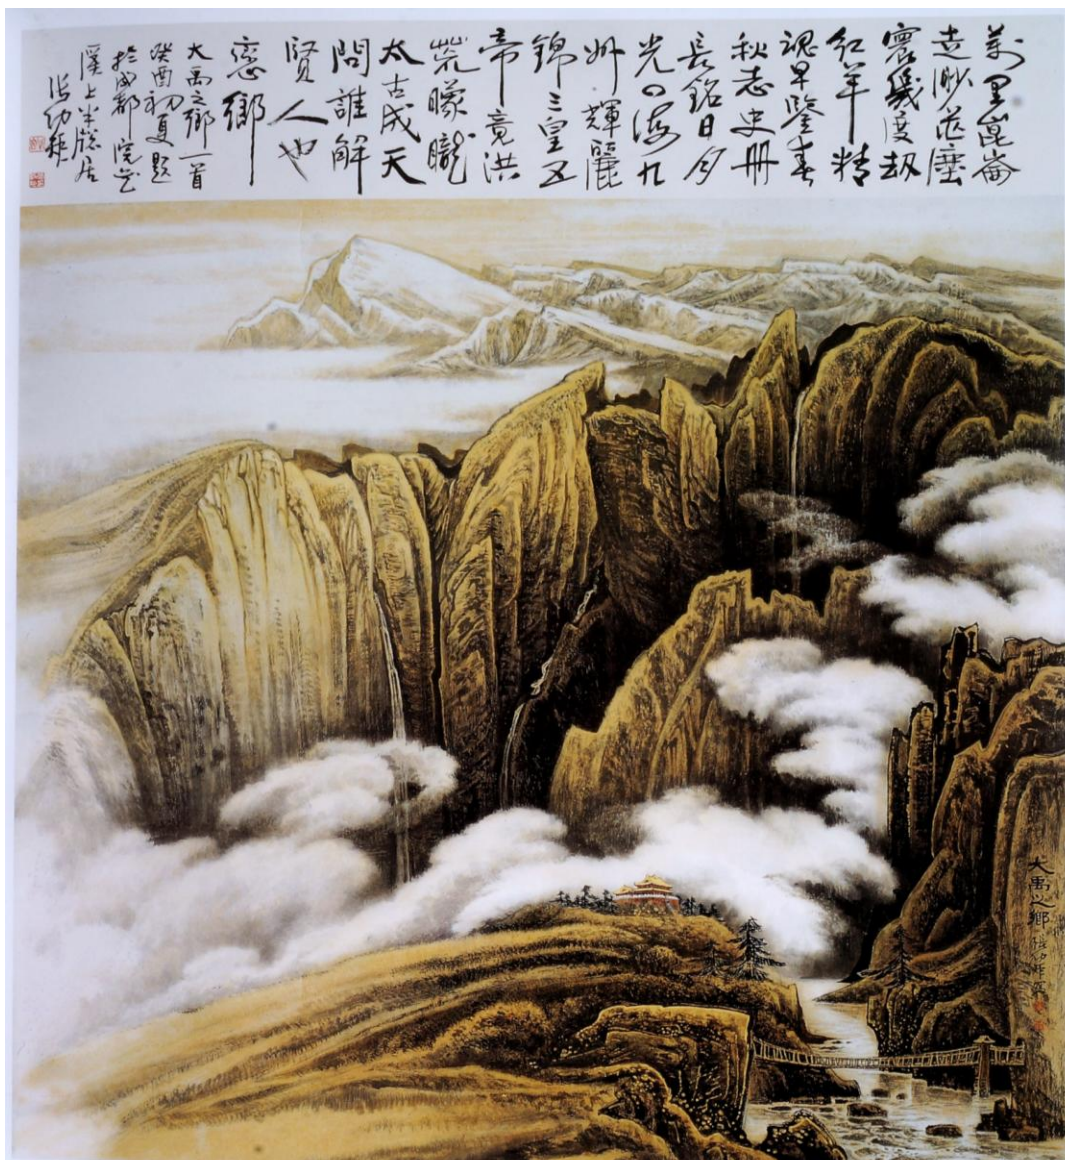 萬里崑崙
走渺茫塵
寰幾度劫
紅羊精
魂早鑒春
秋志史冊
長銘日月
光四海九
州輝麗
錦三皇五
帝竟洪
荒曚曨
太古成天
問誰解
賢人也
戀鄉
大禹之鄉一首
癸酉初夏題
於成都浣花
溪上半牕居
張幼矩
大禹之鄉 張幼矩寫